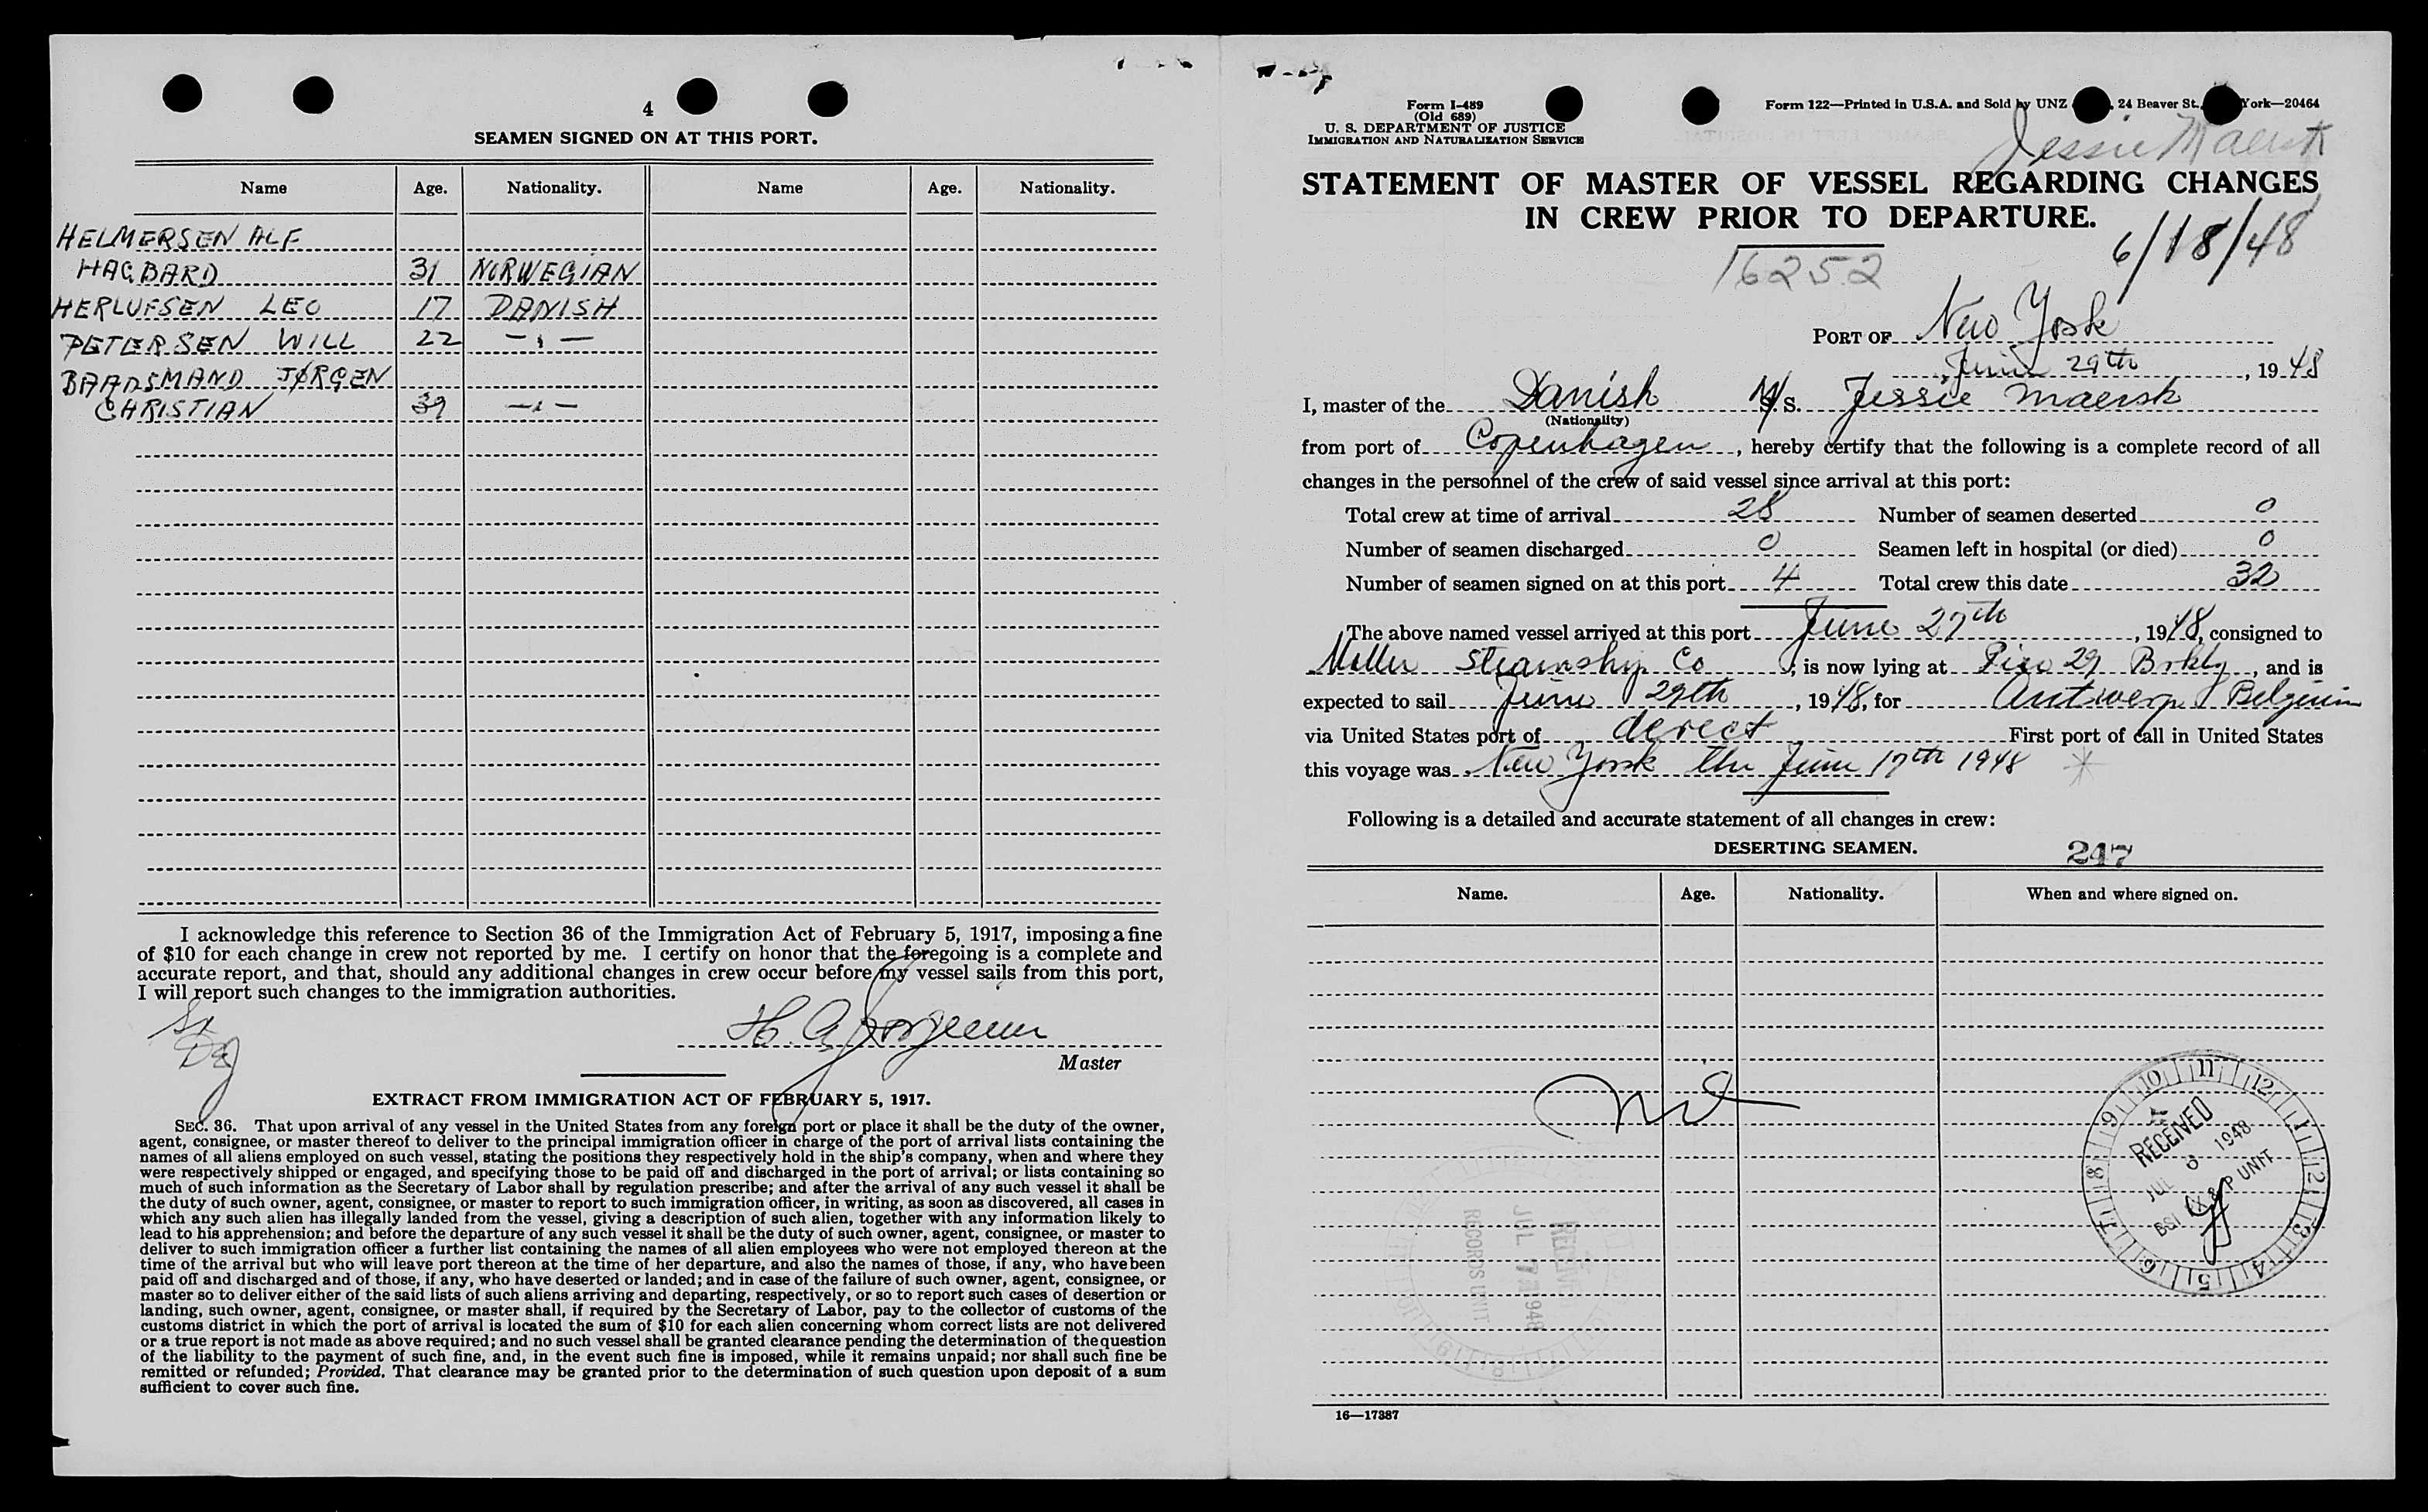 4
SEAMEN SIGNED ON AT THIS PORT.
Name Age. Nationality. Name Age. Nationality.
HELMERSEN ALF
HAGBARD 31 NORWEGIAN
HERLUFSEN LEO 17 DANISH
PETERSEN WILL 22 — " —
BAADSMAND JØRGEN
CHRISTIAN 39 — " —
I acknowledge this reference to Section 36 of the Immigration Act of February 5, 1917, imposing a fine
of $10 for each change in crew not reported by me. I certify on honor that the foregoing is a complete and
accurate report, and that, should any additional changes in crew occur before my vessel sails from this port,
I will report such changes to the immigration authorities.
Master
EXTRACT FROM IMMIGRATION ACT OF FEBRUARY 5, 1917.
SEC. 36. That upon arrival of any vessel in the United States from any foreign port or place it shall be the duty of the owner,
agent, consignee, or master thereof to deliver to the principal immigration officer in charge of the port of arrival lists containing the
names of all aliens employed on such vessel, stating the positions they respectively hold in the ship's company, when and where they
were respectively shipped or engaged, and specifying those to be paid off and discharged in the port of arrival; or lists containing so
much of such information as the Secretary of Labor shall by regulation prescribe; and after the arrival of any such vessel it shall be
the duty of such owner, agent, consignee, or master to report to such immigration officer, in writing, as soon as discovered, all cases in
which any such alien has illegally landed from the vessel, giving a description of such alien, together with any information likely to
lead to his apprehension; and before the departure of any such vessel it shall be the duty of such owner, agent, consignee, or master to
deliver to such immigration officer a further list containing the names of all alien employees who were not employed thereon at the
time of the arrival but who will leave port thereon at the time of her departure, and also the names of those, if any, who have been
paid off and discharged and of those, if any, who have deserted or landed; and in case of the failure of such owner, agent, consignee, or
master so to deliver either of the said lists of such aliens arriving and departing, respectively, or so to report such cases of desertion or
landing, such owner, agent, consignee, or master shall, if required by the Secretary of Labor, pay to the collector of customs of the
customs district in which the port of arrival is located the sum of $10 for each alien concerning whom correct lists are not delivered
or a true report is not made as above required; and no such vessel shall be granted clearance pending the determination of the question
of the liability to the payment of such fine, and, in the event such fine is imposed, while it remains unpaid; nor shall such fine be
remitted or refunded; Provided, That clearance may be granted prior to the determination of such question upon deposit of a sum
sufficient to cover such fine.
Form I-489
(Old 689)
U. S. DEPARTMENT OF JUSTICE
IMMIGRATION AND NATURALIZATION SERVICE
Form 122—Printed in U.S.A. and Sold by UNZ 24 Beaver St., York—20464
Jessie Maersk
STATEMENT OF MASTER OF VESSEL REGARDING CHANGES
IN CREW PRIOR TO DEPARTURE.
6/18/48
16252
PORT OF New York
June 29th, 1948
I, master of the Danish M/S. Jessie Maersk
(Nationality)
from port of Copenhagen, hereby certify that the following is a complete record of all
changes in the personnel of the crew of said vessel since arrival at this port:
Total crew at time of arrival 28 Number of seamen deserted 0
Number of seamen discharged 0 Seamen left in hospital (or died) 0
Number of seamen signed on at this port 4 Total crew this date 32
The above named vessel arrived at this port June 27th, 1948, consigned to
Moller Steamship Co, is now lying at Pier 29 Brkly, and is
expected to sail June 29th, 1948, for Antwerp Belgium
via United States port of derect First port of call in United States
this voyage was New York the June 17th 1948
Following is a detailed and accurate statement of all changes in crew:
DESERTING SEAMEN. 247
Name. Age. Nationality. When and where signed on.
Nil
RECEIVED
JUL 1948
RECEIVED
JUL 7 1948
RECORDS UNIT
16—17387